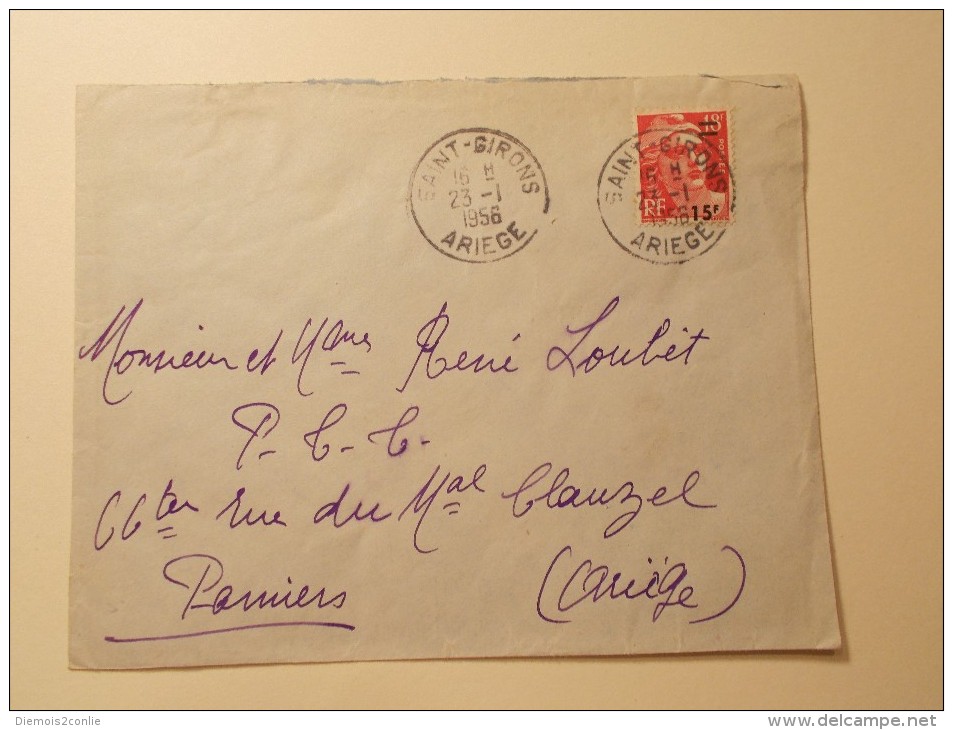 SAINT-GIRONS
16 H
23 -1
1956
ARIEGE
SAINT-GIRONS
H
23 -1
1956
ARIEGE
18F
POSTES
RF
15F
Monsieur et Mme René Loubet
P. T. T.
66 ter rue du Mal Clauzel
Pamiers (Ariège)
Diemois2conlie
www.delcampe.net